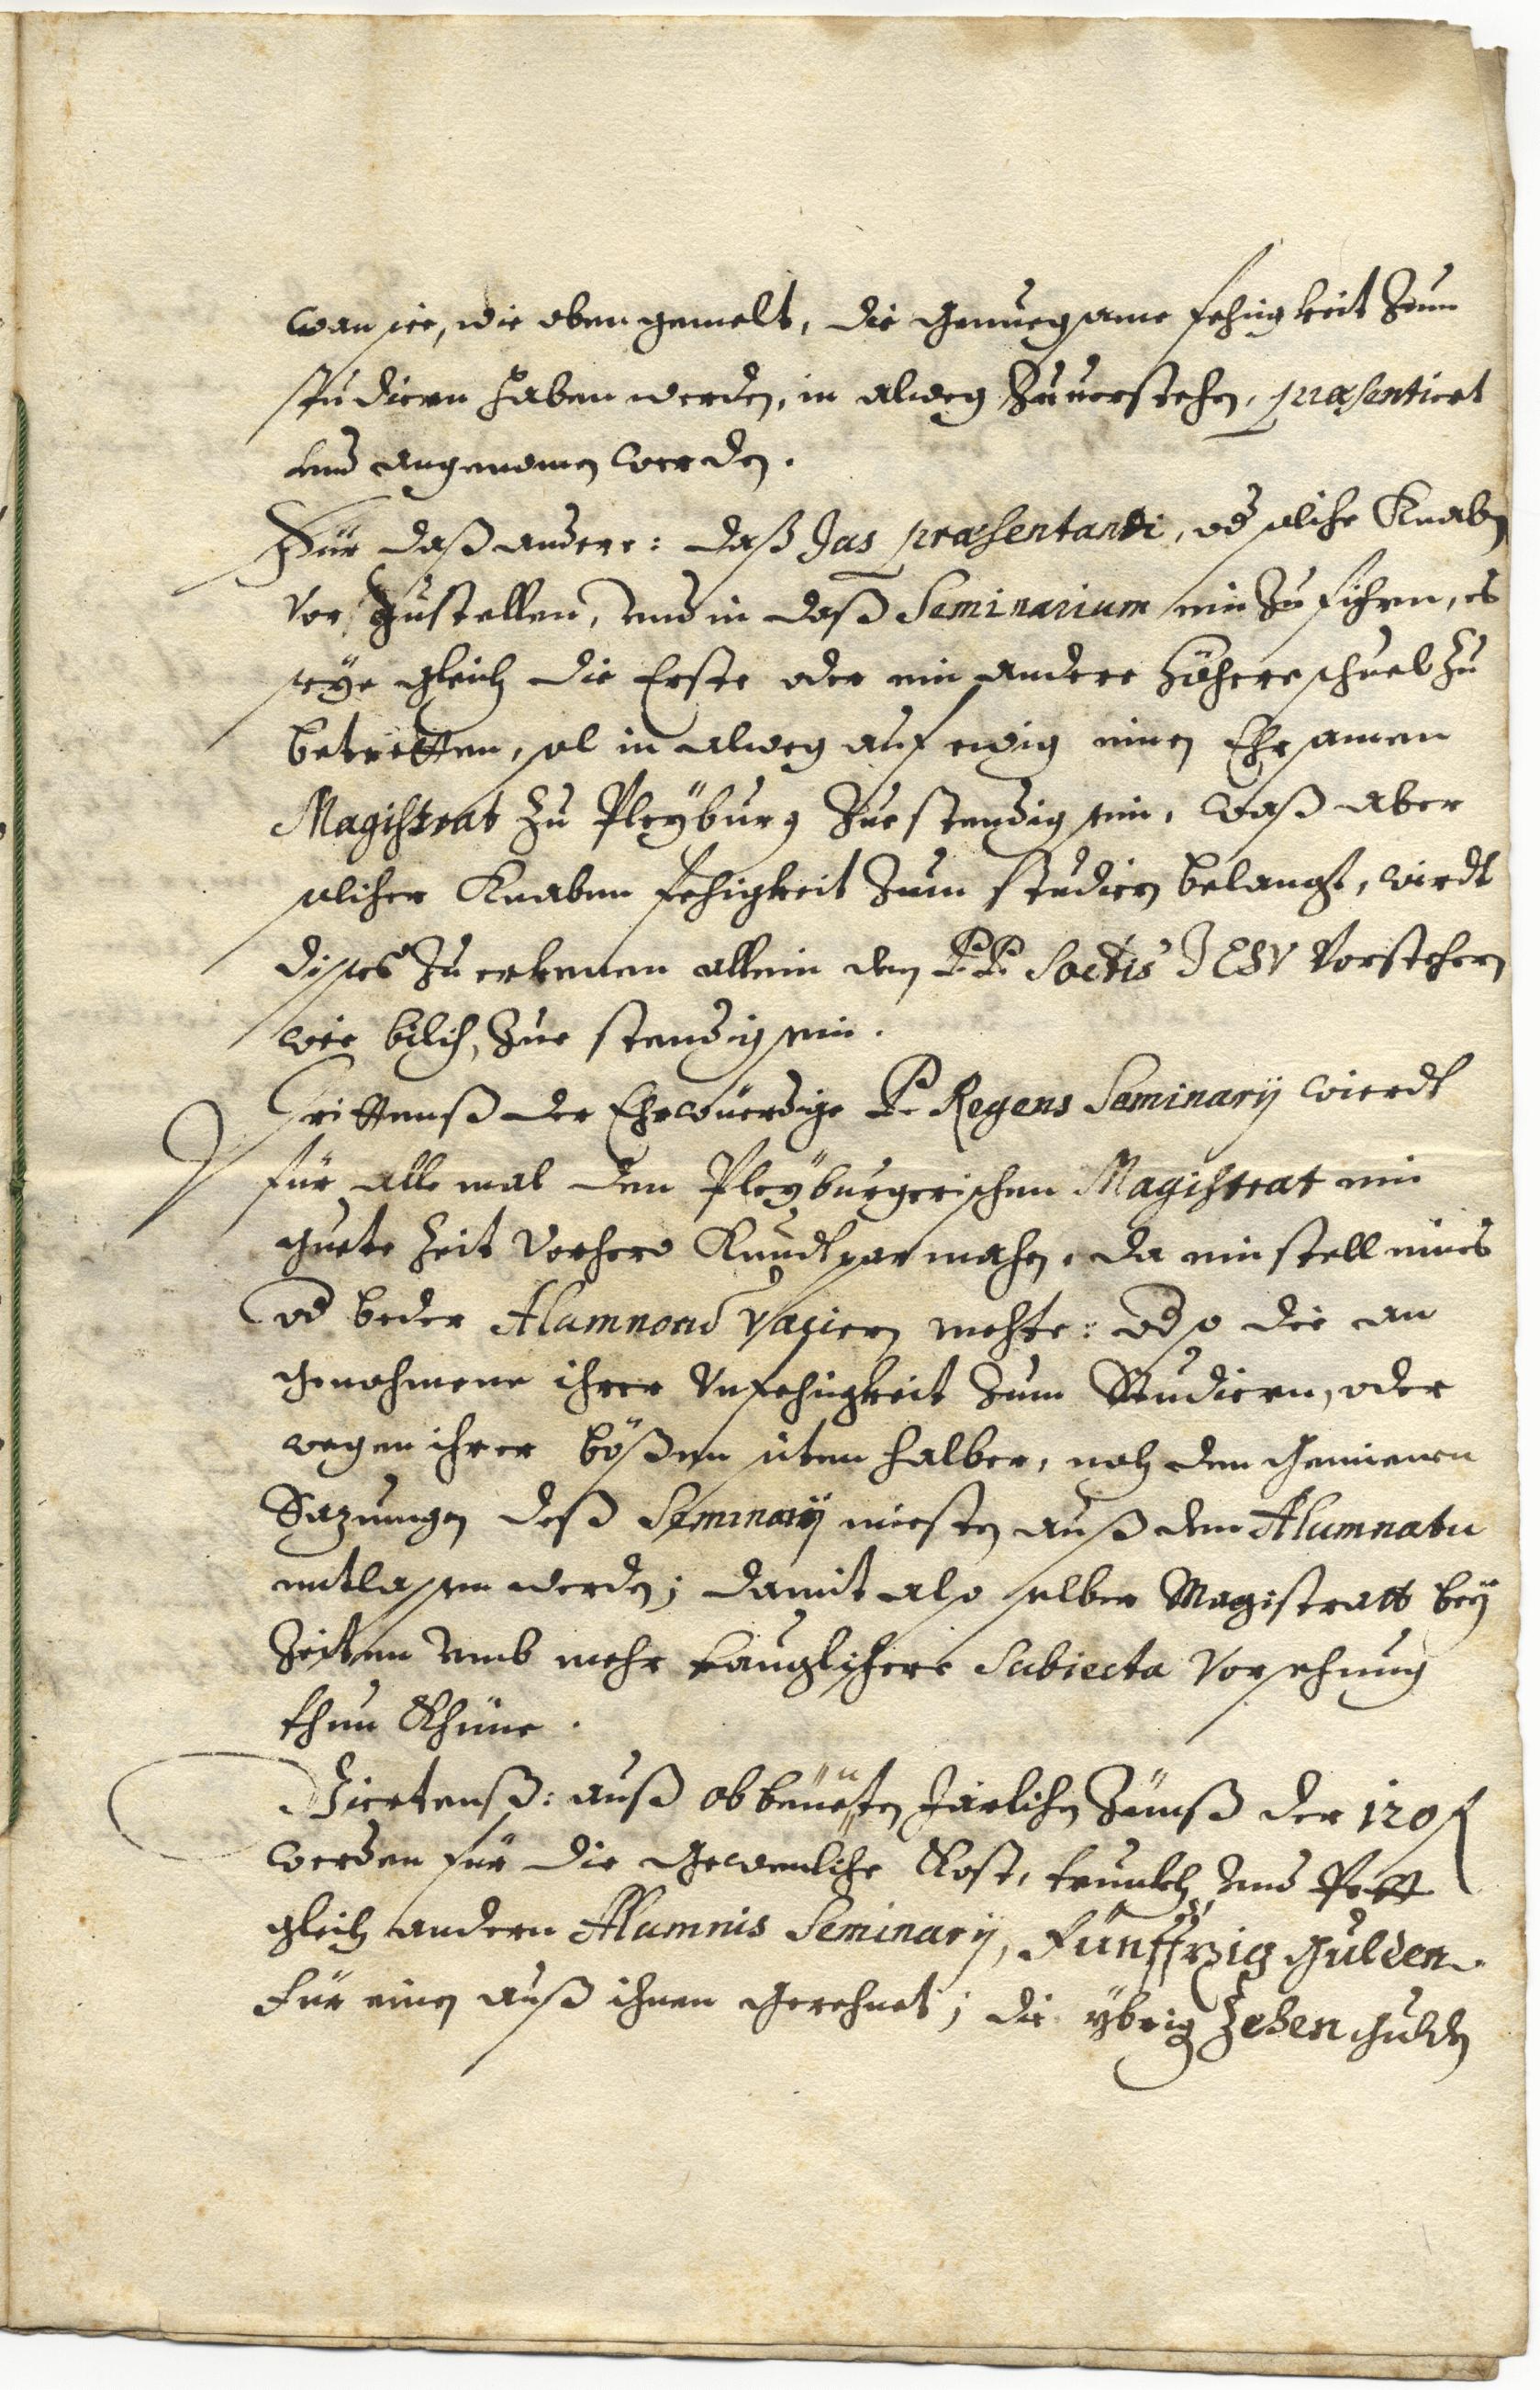 wan sie, wie oben gemelt, die genuegsame fehigkeit zum
studiern haben werden, in alweg zuuerstehen, præsentiert
und angenomen werden.
Für daß andere: daß Jus præsentandi, od solche Knaben
vor zustellen, und in daß Seminarium ein zu fihren, es
seye gleich die Erste oder ein andere höhere schuel zu
betretten, sol in alweg auf ewig einen Ehrsamen
Magistrat zu Pleyburg zuestendig sein, waß aber
solcher Knaben fehigkeit zum studiern belangt, wirdt
dises zu erkenen allein den P.P. Soctis JESV Vorstehern
wie bilich, zue stendig sein.
Drittenß der Ehrwürdige P. Regens Seminarÿ wierdt
für alle mal den Pleyburgerischen Magistrat ein
guete Zeit vorhero Kundtpar machen, da ein stell eines
od beder Alumnorū vaciern mechte: od so die an
genohmene ihrer Vnfehigkeit zum Studiern, oder
wegen ihrer bößen siten halber, nach den gemeinen
Sazungen deß Seminarÿ miesten auß dem Alumnatu
entlassen werden; damit also selber Magistratt bey
Zeiten umb mehr tauglichere Subiecta Vorsehung
thun Khüne.
Viertenß: auß obbenenten Järlichen Zünß der 120 f
werden für die gewenliche Kost, trunkh und Pett
gleich andern Alumnis Seminarÿ, Fünffzig gulden
für einen auß ihnen gerechnet; die ybrig Zehen gulden